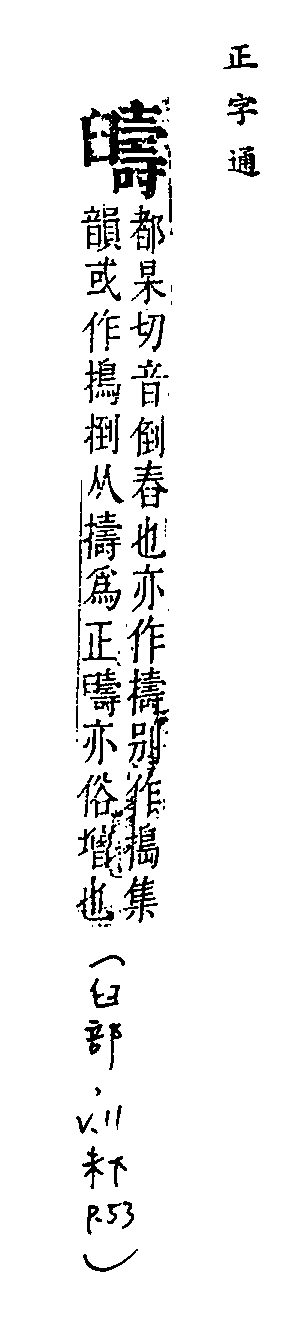 正字通
𦦺
都杲切音倒舂也亦作擣别作搗集
韻或作㨶捯从擣爲正𦦺亦俗增也
(臼部,
v.11
未下
P.53
)